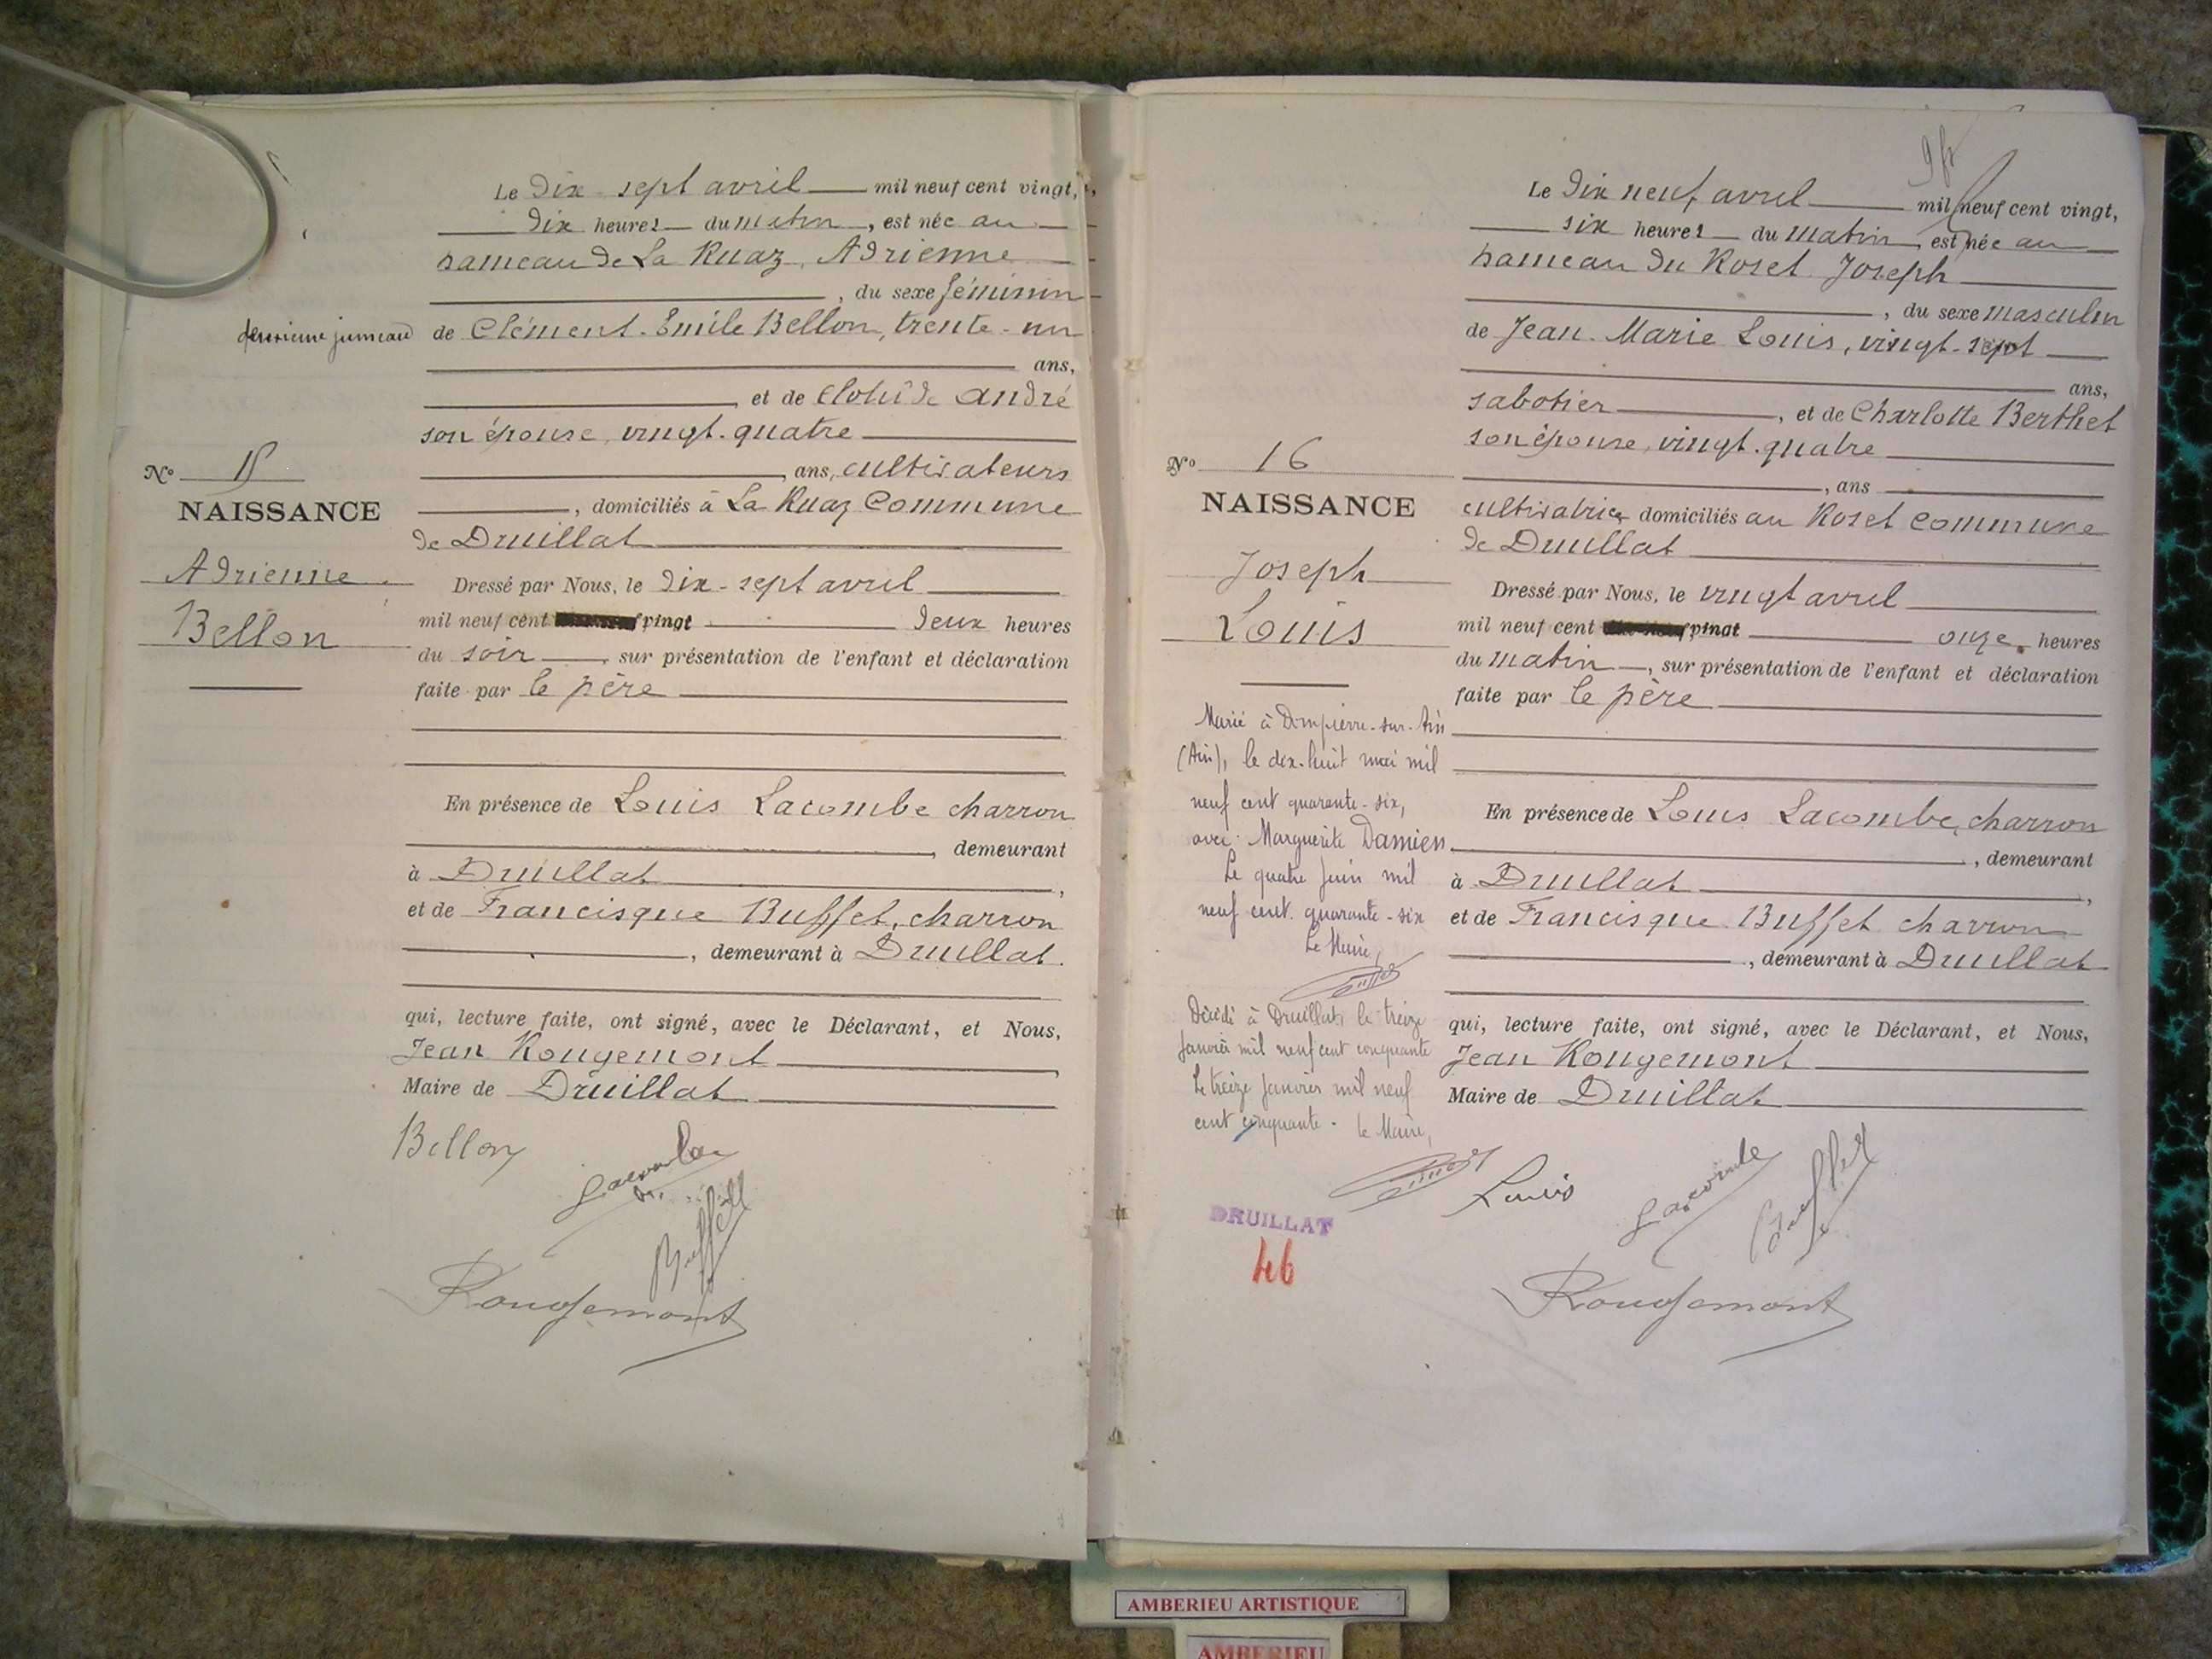 Le Dix-sept avril mil neuf cent vingt,
Dix heures du matin, est née au
hameau de La Ruaz, Adrienne
, du sexe féminin
deuxième jumeau
de Clément-Emile Bellon, trente-un
ans,
et de Clotilde André
son épouse, vingt-quatre
ans, cultivateurs
, domiciliés à La Ruaz Commune
de Druillat
No 15
NAISSANCE
Adrienne
Bellon
Dressé par Nous, le dix-sept avril
mil neuf cent vingt deux heures
du soir, sur présentation de l'enfant et déclaration
faite par le père
En présence de Louis Lacombe charron
, demeurant
à Druillat,
et de Francisque Buffet, charron
, demeurant à Druillat.
qui, lecture faite, ont signé, avec le Déclarant, et Nous,
Jean Rougemont,
Maire de Druillat
Bellon
Lacombe
Buffet
Rougemont
Le Dix neuf avril mil neuf cent vingt,
six heures du matin, est née au
hameau du Roset Joseph
, du sexe masculin
de Jean-Marie Louis, vingt-sept
ans,
sabotier, et de Charlotte Berthet
son épouse, vingt-quatre
, ans
cultivatrice domiciliés au Roset commune
de Druillat
No 16
NAISSANCE
Joseph
Louis
Dressé par Nous, le vingt avril
mil neuf cent vingt onze heures
du matin, sur présentation de l'enfant et déclaration
faite par le père
En présence de Louis Lacombe, charron
, demeurant
à Druillat,
et de Francisque Buffet charron
, demeurant à Druillat
qui, lecture faite, ont signé, avec le Déclarant, et Nous,
Jean Rougemont,
Maire de Druillat
Marié à Dompierre-sur-Ain
(Ain), le dix-huit mai mil
neuf cent quarante-six,
avec Marguerite Damien
Le quatre juin mil
neuf cent quarante-six
Le Maire,
Décédé à Druillat, le treize
janvier mil neuf cent cinquante
Le treize janvier mil neuf
cent cinquante - le Maire,
Louis
Lacombe
Buffet
Rougemont
DRUILLAT
46
AMBERIEU ARTISTIQUE
AMBERIEU